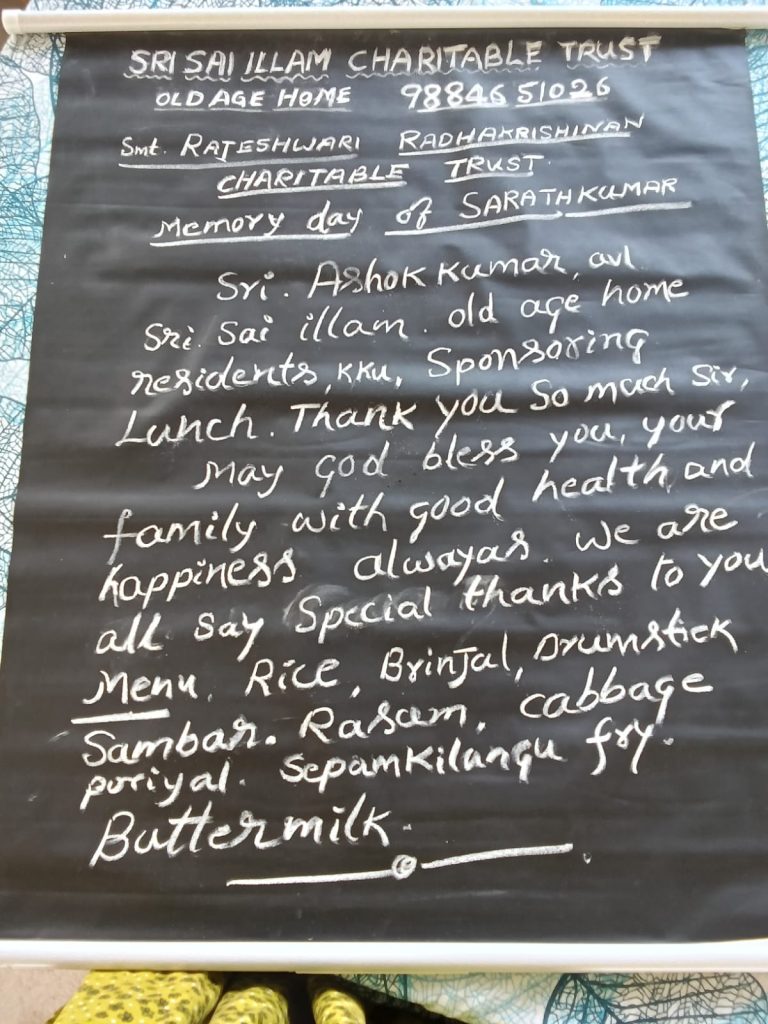 SRI SAI ILLAM CHARITABLE TRUST
OLD AGE HOME 98846 51026
Smt. RAJESHWARI RADHAKRISHINAN
CHARITABLE TRUST.
Memory day of SARATHKUMAR
Sri. Ashok Kumar, avl
Sri. Sai illam. old age home
residents, KKU, Sponsoring
Lunch. Thank you So much Sir,
May god bless you, your
family with good health and
happiness alwayas. we are
all say Special thanks to you
Menu. Rice, Brinjal, Drumstick
Sambar. Rasam. cabbage
poriyal. Sepamkilangu fry.
Buttermilk.